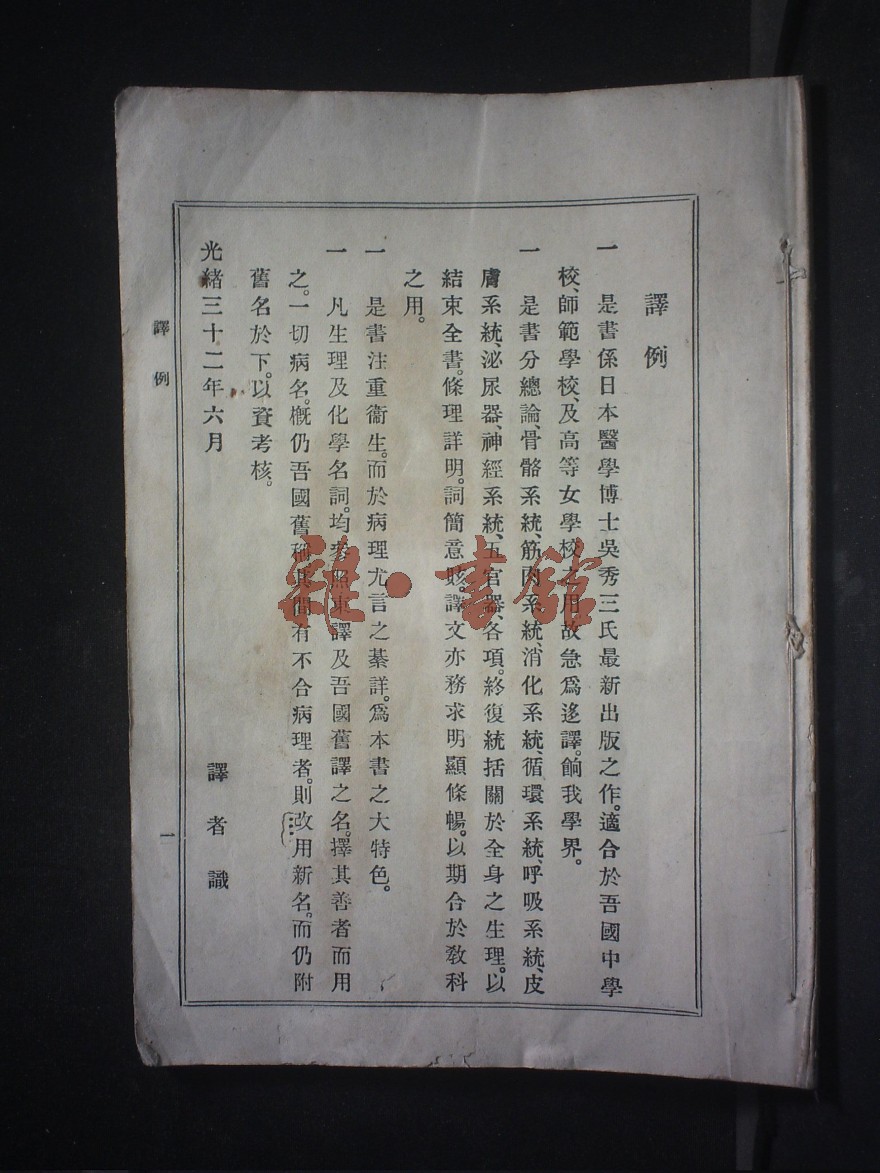 譯例
一　是書係日本醫學博士吳秀三氏最新出版之作。適合於吾國中學
校、師範學校、及高等女學校之用。故急爲迻譯。餉我學界。
一　是書分總論、骨骼系統、筋肉系統、消化系統、循環系統、呼吸系統、皮
膚系統、泌尿器、神經系統、五官器、各項。終復統括關於全身之生理。以
結束全書。條理詳明。詞簡意賅。譯文亦務求明顯條暢。以期合於敎科
之用。
一　是書注重衞生。而於病理尤言之綦詳。爲本書之大特色。
一　凡生理及化學名詞。均參照東譯及吾國舊譯之名。擇其善者而用
之。一切病名。槪仍吾國舊稱。其間有不合病理者。則改用新名。而仍附
舊名於下。以資考核。
光緒三十二年六月　譯者識
譯例　一
雜·書館